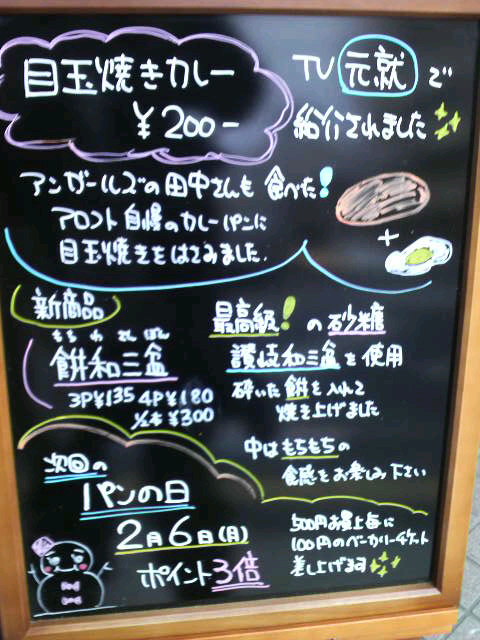 目玉焼きカレー
¥200-
TV 元就で
紹介されました
アンガールズの田中さんも 食べた!
アロフト 自慢のカレーパンに
目玉焼きをはさみました。
+
新商品
もち わさんぼん
餅和三盆
3P¥135 4P¥180
½本 ¥300
最高級!の砂糖
讃岐和三盆を使用
砕いた餅を入れて
焼き上げました
中はもちもちの
食感をお楽しみ下さい
次回の
パンの日
2月6日(月)
ポイント3倍
500円お買上毎に
100円のベーカリーチケット
差し上げます